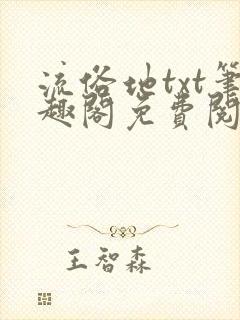 流俗地txt筆
趣閣免費閱
王智森